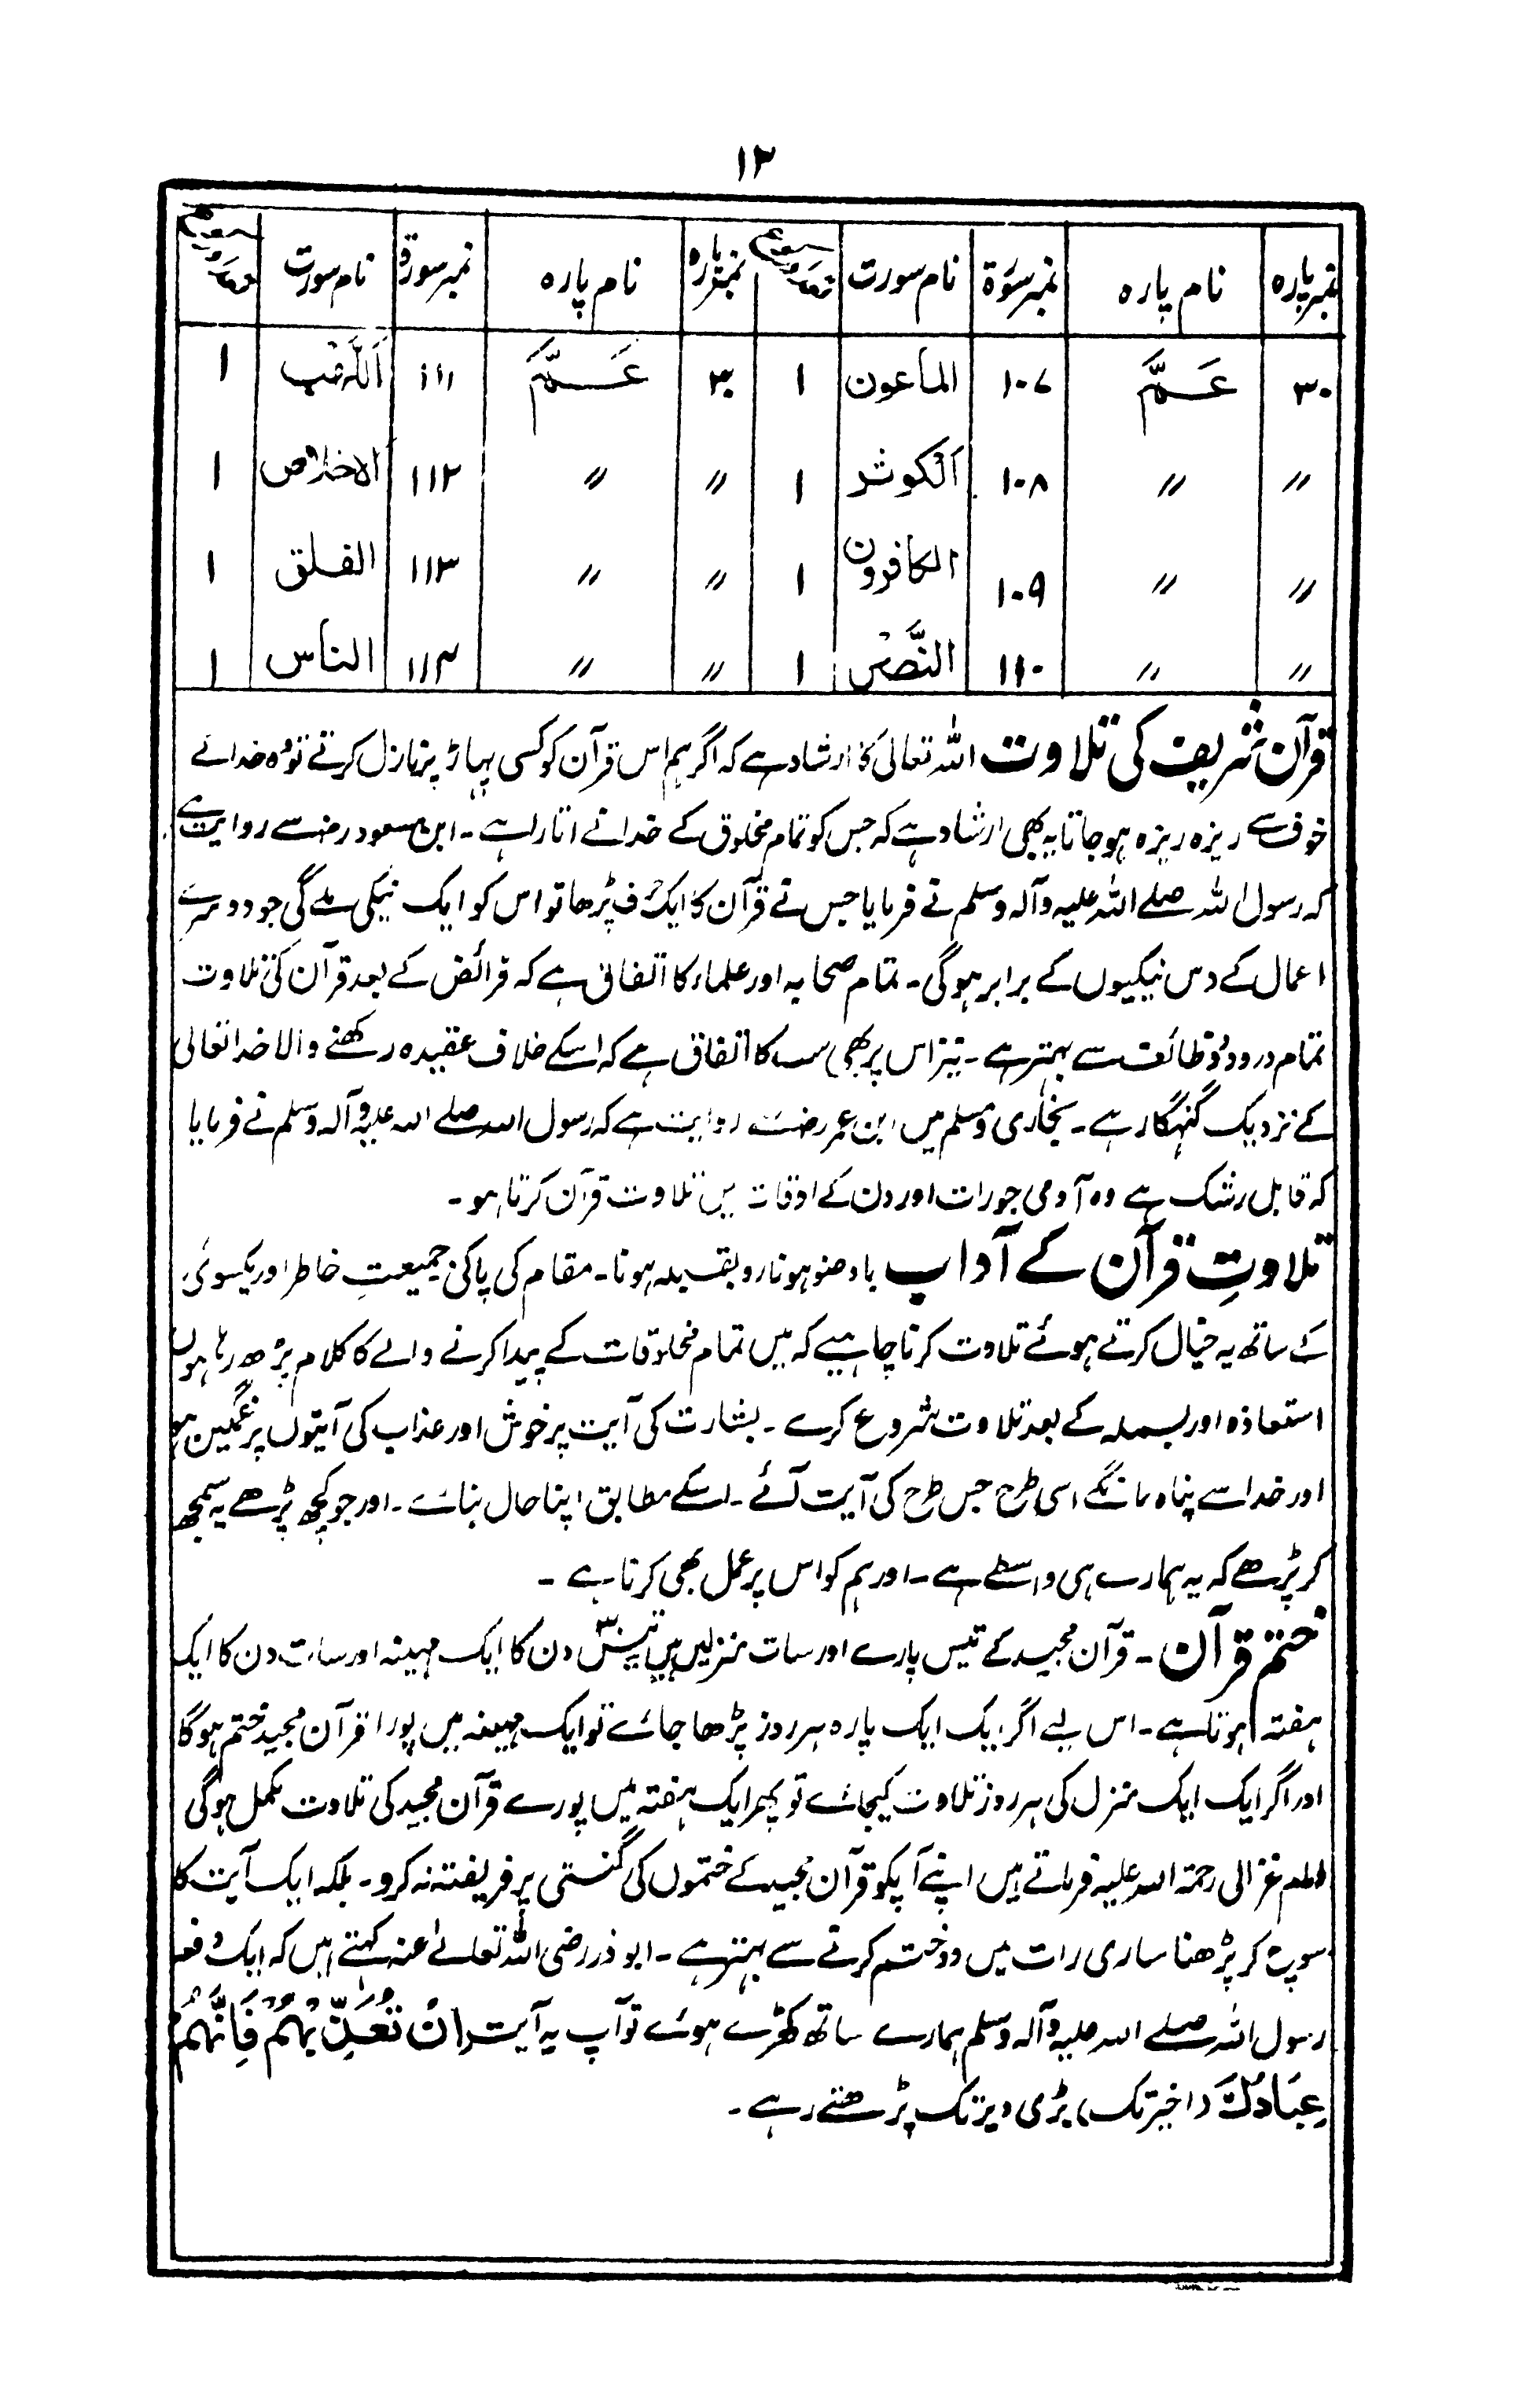 ۱۲
نمبر پارہ نام پارہ نمبر سورۃ نام سورت تعداد رکوع نمبر پارہ نام پارہ نمبر سورۃ نام سورت تعداد رکوع
۳۰ عَمَّ ۱۰۷ الماعون ۱ ۳۰ عَمَّ ۱۱۱ اَللَّہَب ۱
〃 〃 ۱۰۸ اَلکوثر ۱ 〃 〃 ۱۱۲ الاخلاص ۱
〃 〃 ۱۰۹ الکافرون ۱ 〃 〃 ۱۱۳ الفلق ۱
〃 〃 ۱۱۰ النَّصْر ۱ 〃 〃 ۱۱۴ الناس ۱
قرآن شریف کی تلاوت اللہ تعالیٰ کا ارشاد ہے کہ اگر ہم اس قرآن کو کسی پہاڑ پر نازل کرتے تو وہ خدا کے
خوف سے ریزہ ریزہ ہو جاتا یہ بھی ارشاد ہے کہ جس کو تمام مخلوق کے خدا نے اتارا ہے۔ ابن مسعود رضؓ سے روایت ہے
کہ رسول اللہ صلے اللہ علیہ وآلہ وسلم نے فرمایا جس نے قرآن کا ایک حرف پڑھا تو اس کو ایک نیکی ملے گی جو دوسرے
اعمال کے دس نیکیوں کے برابر ہوگی۔ تمام صحابہ اور علماء کا اتفاق ہے کہ فرائض کے بعد قرآن کی تلاوت
تمام درود و وظائف سے بہتر ہے۔ نیز اس پر بھی سب کا اتفاق ہے کہ اسکے خلاف عقیدہ رکھنے والا خدا تعالیٰ
کے نزدیک گنہگار ہے۔ بخاری و مسلم میں ابن عمر رضؓ سے روایت ہے کہ رسول اللہ صلے اللہ علیہ وآلہ وسلم نے فرمایا
کہ قابل رشک ہے وہ آدمی جو رات اور دن کے اوقات میں تلاوت قرآن کرتا ہو۔
تلاوتِ قرآن کے آداب باوضو ہونا رو بقبلہ ہونا۔ مقام کی پاکی جمیعتِ خاطر اور یکسوئی
کے ساتھ یہ خیال کرتے ہوئے تلاوت کرنا چاہیے کہ میں تمام مخلوقات کے پیدا کرنے والے کا کلام پڑھ رہا ہوں
استعاذہ اور بسملہ کے بعد تلاوت شروع کرے۔ بشارت کی آیت پر خوش اور عذاب کی آیتوں پر غمگین ہو
اور خدا سے پناہ مانگے اسی طرح جس طرح کی آیت آئے۔ اسکے مطابق اپنا حال بنائے۔ اور جو کچھ پڑھے یہ سمجھ
کر پڑھے کہ یہ ہمارے ہی واسطے ہے۔ اور ہم کو اس پر عمل بھی کرنا ہے۔
ختم قرآن۔ قرآن مجید کے تیس پارے اور سات منزلیں ہیں تیس دن کا ایک مہینہ اور سات دن کا ایک
ہفتہ ہوتا ہے۔ اس لیے اگر ایک ایک پارہ ہر روز پڑھا جائے تو ایک مہینہ میں پورا قرآن مجید ختم ہوگا
اور اگر ایک ایک منزل کی ہر روز تلاوت کیجائے تو پھر ایک ہفتہ میں پورے قرآن مجید کی تلاوت مکمل ہوگی
امام غزالی رحمۃ اللہ علیہ فرماتے ہیں اپنے آپکو قرآن مجید کے ختموں کی گنتی پر فریفتہ نہ کرو۔ بلکہ ایک آیت کا
سوچ کر پڑھنا ساری رات میں دو ختم کرنے سے بہتر ہے۔ ابوذر رضی اللہ تعالےٰ عنہ کہتے ہیں کہ ایک دفعہ
رسول اللہ صلے اللہ علیہ وآلہ وسلم ہمارے ساتھ کھڑے ہوئے تو آپ یہ آیت اِنْ تُعَذِّبْہُمْ فَاِنَّہُمْ
عِبَادُكَ (اخیر تک) بڑی دیر تک پڑھتے رہے۔